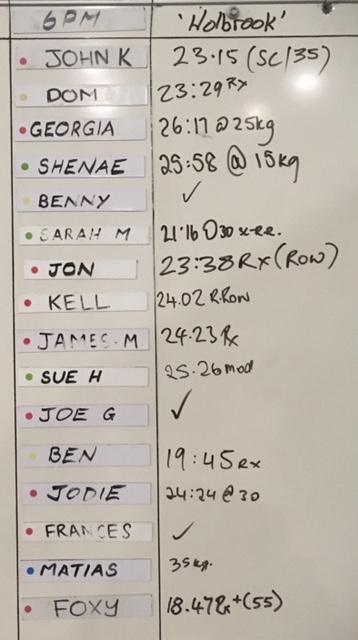 6PM 'Holbrook'
JOHN K 23.15 (SC/35)
DOM 23:29 RX
GEORGIA 26:17 @ 25kg
SHENAE 25:58 @ 15kg
BENNY ✓
SARAH M 21'16 30
JON 23:38 RX (ROW)
KELL 24.02 R.ROW
JAMES.M 24.23 Rx
SUE H 25.26 mod
JOE G ✓
BEN 19:45 RX
JODIE 24:24 @ 30
FRANCES ✓
MATIAS 35kg.
FOXY 18.47 Rx+(55)